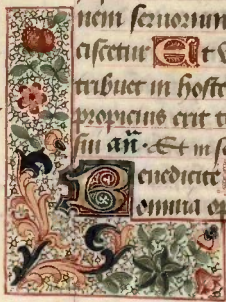 nem sermonum
ciscetur Et v
tribuet in hoste
propicius erit t
sui añ. Et in s
Benedicite
omnia op